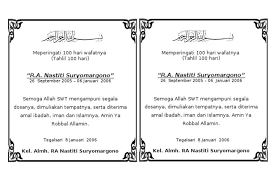 Meperingati 100 hari wafatnya
(Tahlil 100 hari)
"R.A. Nastiti Suryomargono"
26 September 2005 – 06 Januari 2006
Semoga Allah SWT mengampuni segala
dosanya, dimuliakan tempatnya, serta diterima
amal ibadah, iman dan islamnya. Amin Ya
Robbal Allamin.
Tegalsari 8 Januari 2006
Kel. Almh. RA Nastiti Suryomargono
Meperingati 100 hari wafatnya
(Tahlil 100 hari)
"R.A. Nastiti Suryomargono"
26 September 2005 – 06 Januari 2006
Semoga Allah SWT mengampuni segala
dosanya, dimuliakan tempatnya, serta diterima
amal ibadah, iman dan islamnya. Amin Ya
Robbal Allamin.
Tegalsari 8 Januari 2006
Kel. Almh. RA Nastiti Suryomargono